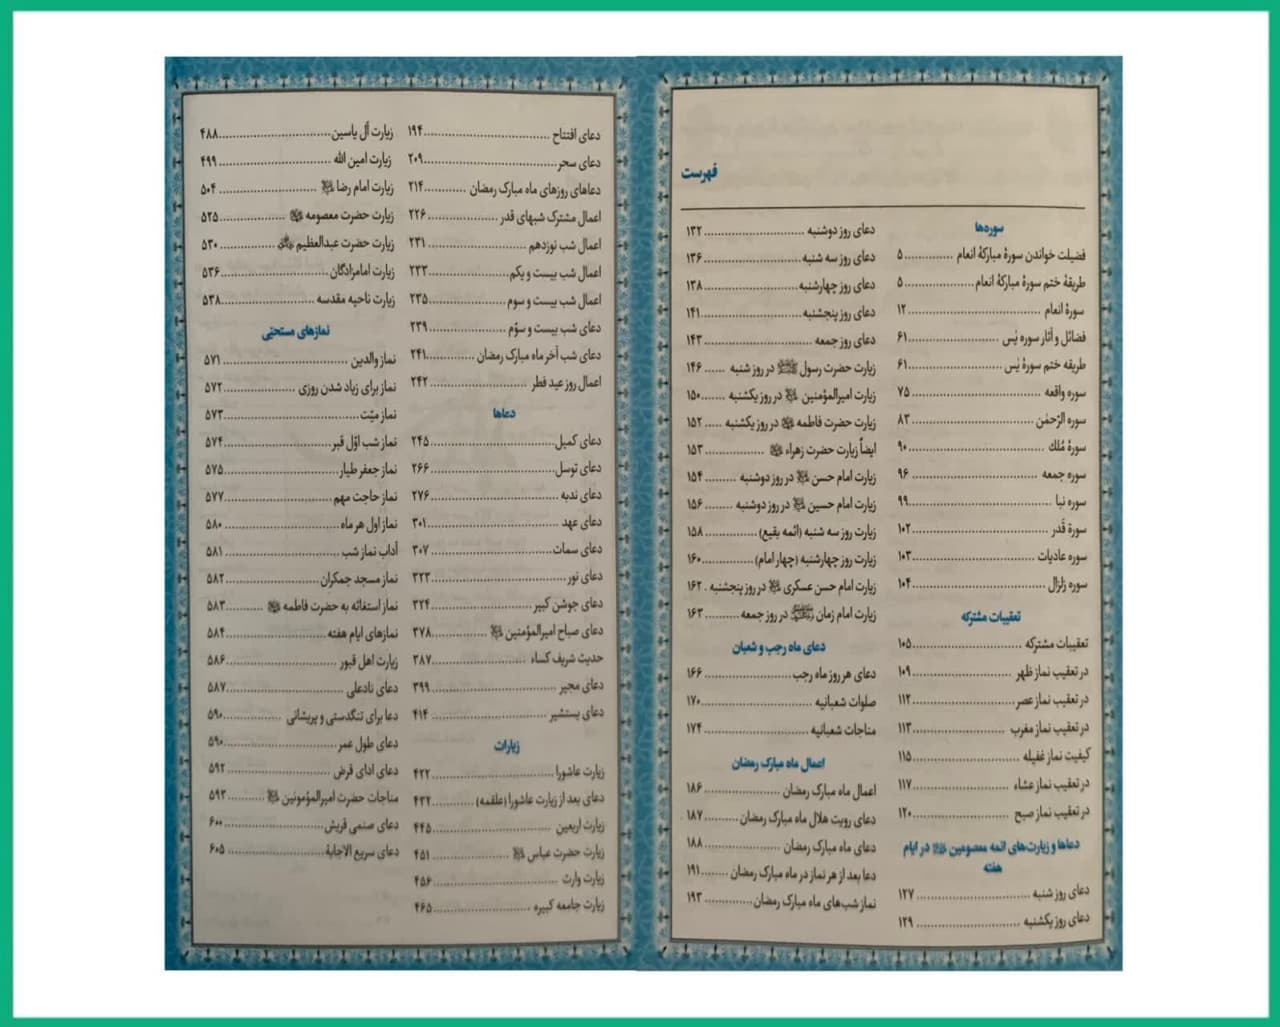 فهرست
سوره‌ها
فضیلت خواندن سورهٔ مبارکهٔ انعام ............ ۵
طریقهٔ ختم سورهٔ مبارکهٔ انعام ............ ۵
سورهٔ انعام ............ ۱۲
فضائل و آثار سوره یٰس ............ ۶۱
طریقه ختم سورهٔ یٰس ............ ۶۱
سوره واقعه ............ ۷۵
سوره الرّحمٰن ............ ۸۳
سورهٔ مُلك ............ ۹۰
سوره جمعه ............ ۹۶
سوره نبا ............ ۹۹
سورهٔ قَدر ............ ۱۰۲
سوره عادیات ............ ۱۰۳
سوره زلزال ............ ۱۰۴
تعقیبات مشترکه
تعقیبات مشترکه ............ ۱۰۵
در تعقیب نماز ظهر ............ ۱۰۹
در تعقیب نماز عصر ............ ۱۱۲
در تعقیب نماز مغرب ............ ۱۱۳
کیفیت نماز غفیله ............ ۱۱۵
در تعقیب نماز عشاء ............ ۱۱۷
در تعقیب نماز صبح ............ ۱۲۰
دعاها و زیارت‌های ائمه معصومین در ایام
هفته
دعای روز شنبه ............ ۱۲۷
دعای روز یکشنبه ............ ۱۲۹
دعای روز دوشنبه ............ ۱۳۲
دعای روز سه شنبه ............ ۱۳۶
دعای روز چهارشنبه ............ ۱۳۸
دعای روز پنجشنبه ............ ۱۴۱
دعای روز جمعه ............ ۱۴۳
زیارت حضرت رسول ﷺ در روز شنبه ...... ۱۴۶
زیارت امیرالمؤمنین در روز یکشنبه ...... ۱۵۰
زیارت حضرت فاطمه در روز یکشنبه ..... ۱۵۲
ایضاً زیارت حضرت زهراء ............ ۱۵۳
زیارت امام حسن در روز دوشنبه ......... ۱۵۴
زیارت امام حسین در روز دوشنبه ......... ۱۵۶
زیارت روز سه شنبه (ائمه بقیع) ............ ۱۵۸
زیارت روز چهارشنبه (چهار امام) ............ ۱۶۰
زیارت امام حسن عسکری در روز پنجشنبه . ۱۶۲
زیارت امام زمان در روز جمعه .......... ۱۶۳
دعای ماه رجب و شعبان
دعای هر روز ماه رجب ............ ۱۶۶
صلوات شعبانیه ............ ۱۷۰
مناجات شعبانیه ............ ۱۷۴
اعمال ماه مبارک رمضان
اعمال ماه مبارک رمضان ............ ۱۸۶
دعای رویت هلال ماه مبارک رمضان ......... ۱۸۷
دعای ماه مبارک رمضان ............ ۱۸۸
دعا بعد از هر نماز در ماه مبارک رمضان ........ ۱۹۱
نماز شب‌های ماه مبارک رمضان ............ ۱۹۳
دعای افتتاح ............ ۱۹۴
دعای سحر ............ ۲۰۹
دعاهای روزهای ماه مبارک رمضان ........... ۲۱۴
اعمال مشترک شبهای قدر ............ ۲۲۶
اعمال شب نوزدهم ............ ۲۳۱
اعمال شب بیست و یکم ............ ۲۳۳
اعمال شب بیست و سوم ............ ۲۳۵
دعای شب بیست و سوّم ............ ۲۳۹
دعای شب آخر ماه مبارک رمضان ............ ۲۴۱
اعمال روز عید فطر ............ ۲۴۲
دعاها
دعای کمیل ............ ۲۴۵
دعای توسل ............ ۲۶۶
دعای ندبه ............ ۲۷۶
دعای عهد ............ ۳۰۱
دعای سمات ............ ۳۰۷
دعای نور ............ ۳۲۳
دعای جوشن کبیر ............ ۳۲۴
دعای صباح امیرالمؤمنین ............ ۳۷۸
حدیث شریف کساء ............ ۳۸۷
دعای مجیر ............ ۳۹۹
دعای یستشیر ............ ۴۱۴
زیارات
زیارت عاشورا ............ ۴۲۲
دعای بعد از زیارت عاشورا (علقمه) .......... ۴۳۲
زیارت اربعین ............ ۴۴۵
زیارت حضرت عباس ............ ۴۵۱
زیارت وارث ............ ۴۵۶
زیارت جامعه کبیره ............ ۴۶۵
زیارت آل یاسین ............ ۴۸۸
زیارت امین الله ............ ۴۹۹
زیارت امام رضا ............ ۵۰۴
زیارت حضرت معصومه ............ ۵۲۵
زیارت حضرت عبدالعظیم ............ ۵۳۰
زیارت امامزادگان ............ ۵۳۶
زیارت ناحیه مقدسه ............ ۵۳۸
نمازهای مستحبّی
نماز والدین ............ ۵۷۱
نماز برای زیاد شدن روزی ............ ۵۷۲
نماز میّت ............ ۵۷۳
نماز شب اوّل قبر ............ ۵۷۴
نماز جعفر طیار ............ ۵۷۵
نماز حاجت مهم ............ ۵۷۷
نماز اول هر ماه ............ ۵۸۰
آداب نماز شب ............ ۵۸۱
نماز مسجد جمکران ............ ۵۸۲
نماز استغاثه به حضرت فاطمه .......... ۵۸۳
نمازهای ایام هفته ............ ۵۸۴
زیارت اهل قبور ............ ۵۸۶
دعای نادعلی ............ ۵۸۷
دعا برای تنگدستی و پریشانی ............ ۵۹۰
دعای طول عمر ............ ۵۹۰
دعای ادای قرض ............ ۵۹۲
مناجات حضرت امیرالمؤمونین .......... ۵۹۳
دعای صنمی قریش ............ ۶۰۰
دعای سریع الاجابة ............ ۶۰۵